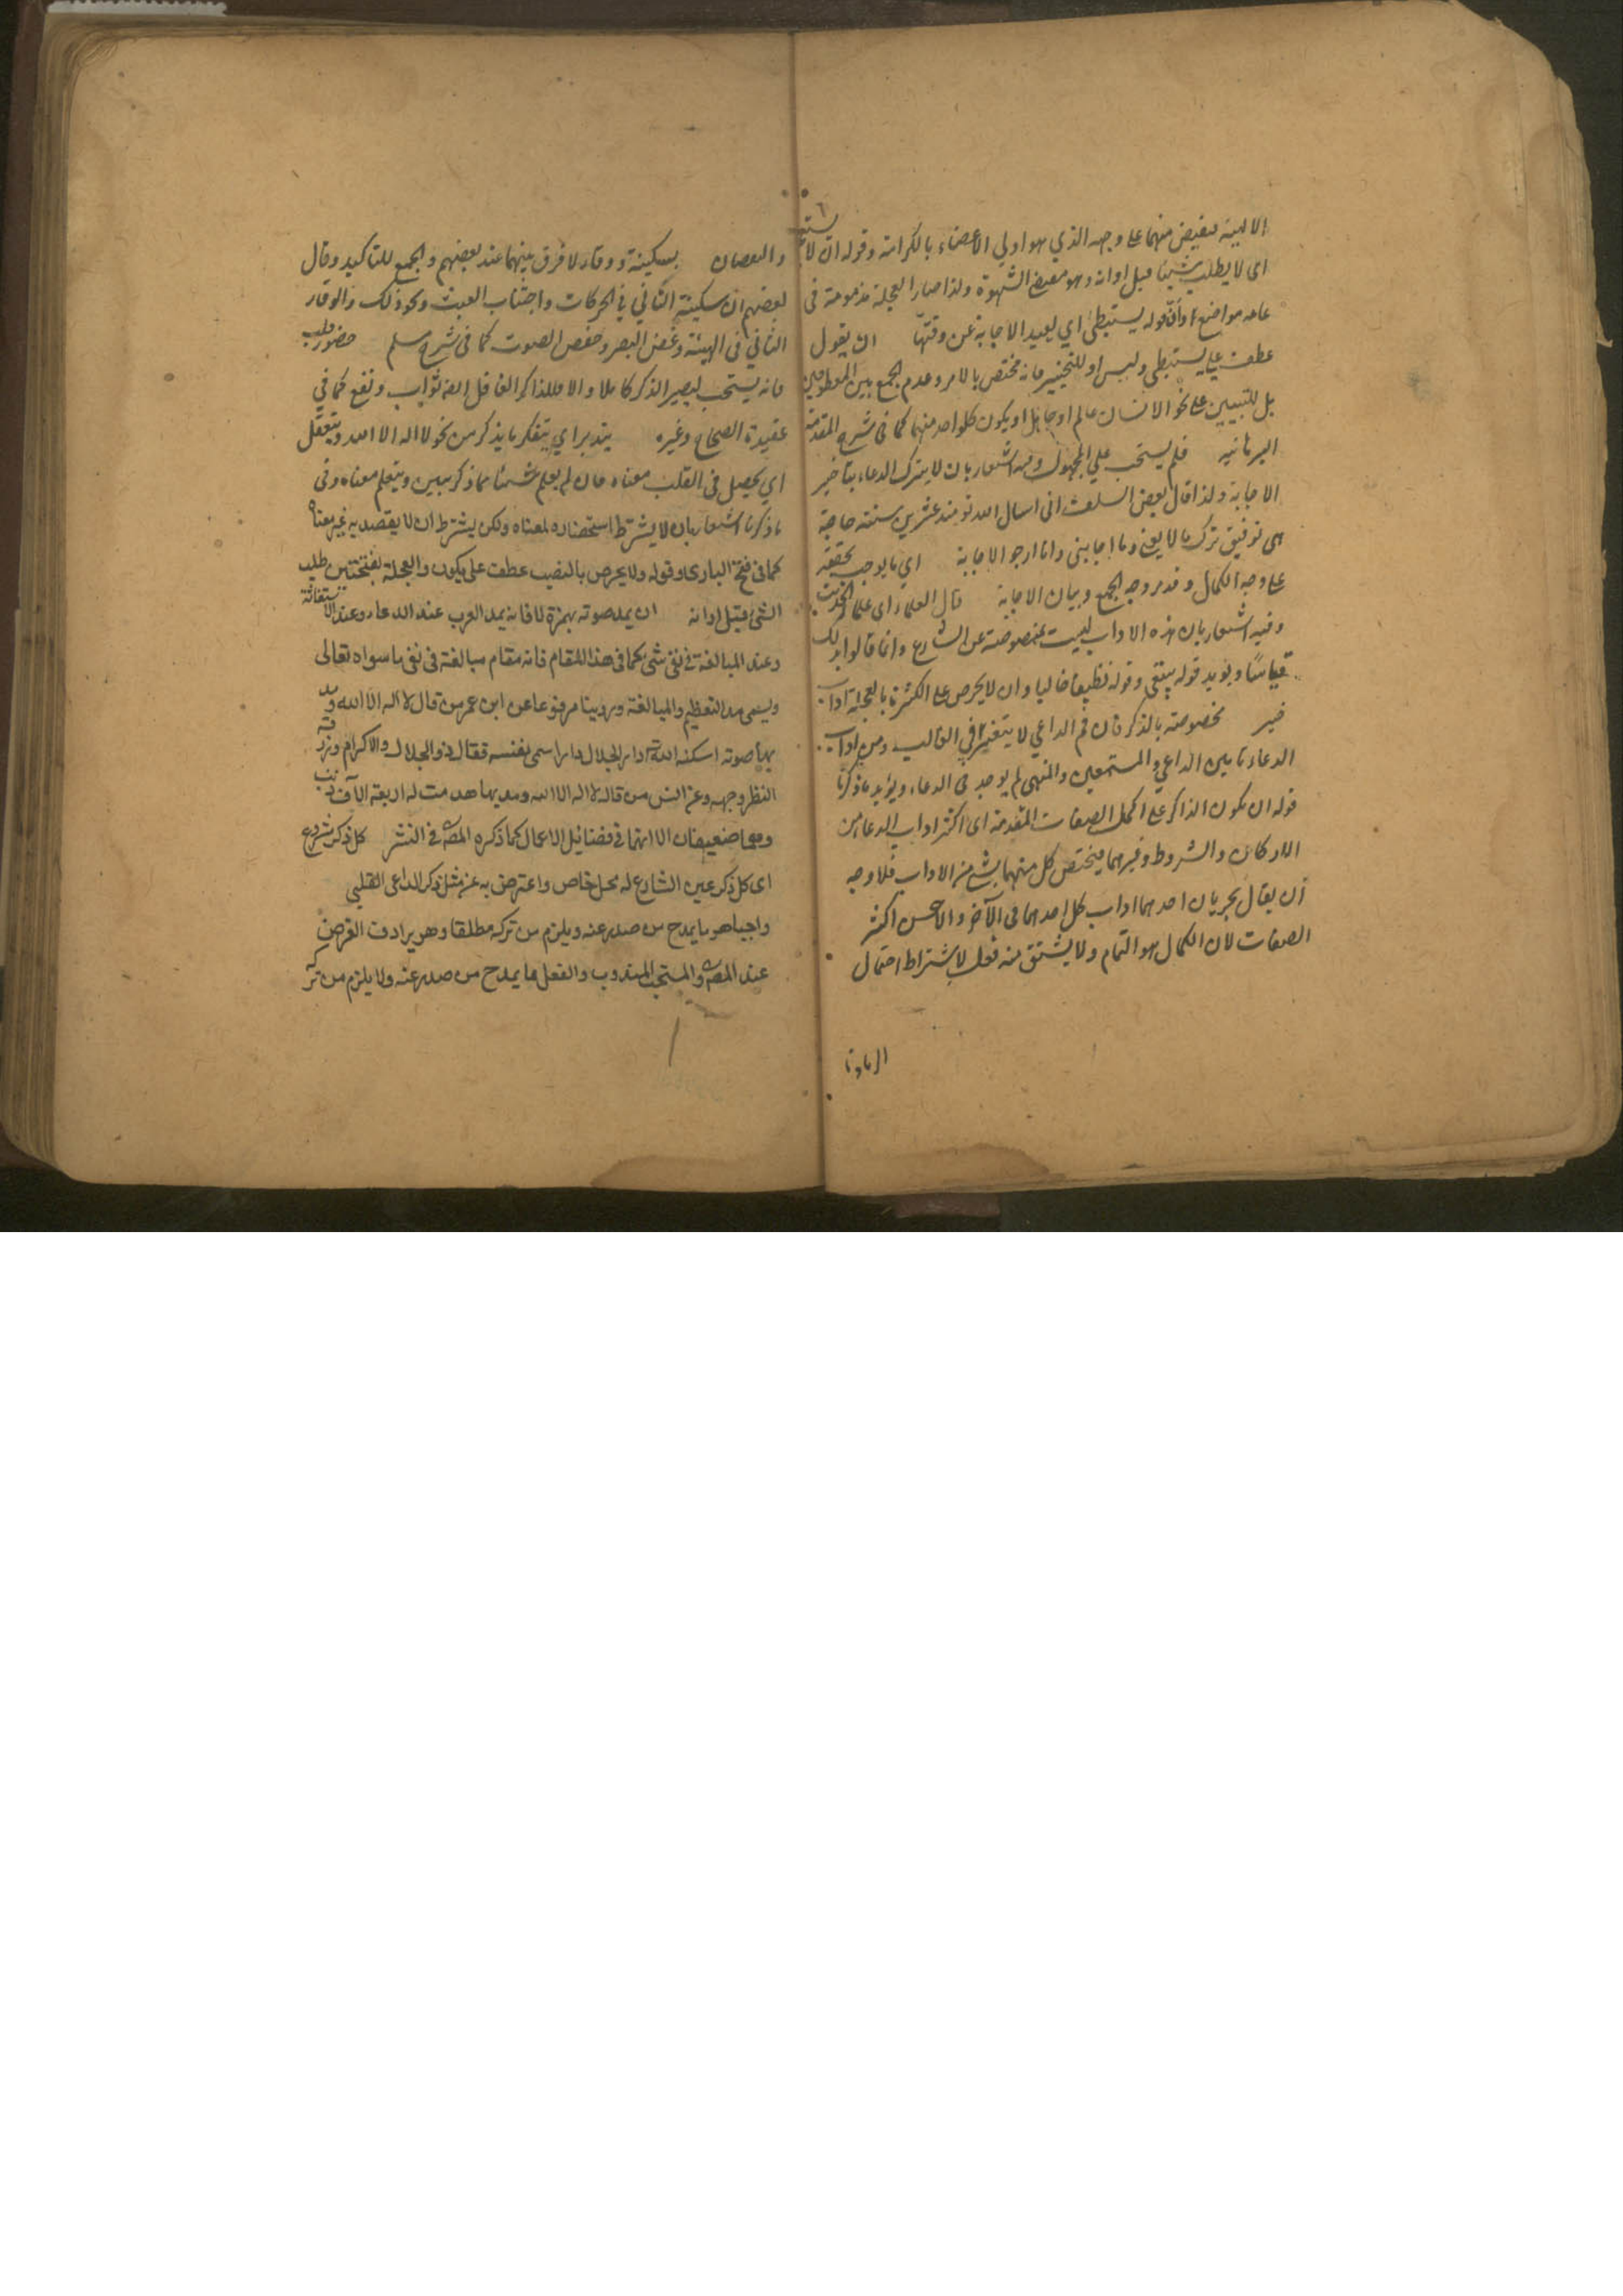 الالهية فيفيض منهما على وجهه الذي هو اولي الاعضاء بالكرامة وقوله ان لا يستعجل
اى لا يطلب شيئا قبل اوانه وهو مقتضى الشهوة ولذا صار العجلة مذمومة فى
عامة مواضع او قوله يستبطئ اي يعيد الاجابة عن وقتها ان يقول
عطف على يستبطئ وليس او للتخيير فانه مختص بالامر وعدم الجمع بين المعطوفين
بل للتبيين على نحو الانسان عالم او جاهل او يكون كلواحد منهما كما فى شرح المقدمة
البرهانية فلم يستجب علي المجهول وفيه اشعار بان لا يترك الدعاء بتأخير
الاجابة ولذا قال بعض السلف انى اسال الله تو منذ عشرين سنة حاجة
هى توفيق ترك ما لا يعني وما اجابنى وانا ارجو الاجابة اي ما يوجب تحققه
على وجه الكمال وقد مر وجه الجمع وبيان الاجابة قال العلماء اى علماء الحديث
وفيه اشعار بان هذه الاداب ليست بمنصوصة عن الشارع وانما قالوا بذلك
قياسا ويؤيد قوله ينقى وقوله نظيفا خاليا وان لا يحرص على الكثرة بالعجلة اداب
خير مخصوصة بالذكر فان فم الداعي لا يتغير في الغالب ومن اداب
الدعاء تامين الداعي والمستمعين والمنهى لم يوجد فى الدعاء ويؤيد ما ذكرنا
قوله ان يكون الذاكر على اكمل الصفات المتقدمة اى اكثر اداب الدعاء من
الاركان والشروط وغيرهما فيختص كل منهما بشئ من الاداب فلا وجه
ان يقال بجريان احدهما اداب كل احدهما فى الآخر والاحسن اكثر
الصفات لان الكمال هو التمام ولا يشتق منه فعل لاشتراط احتمال
الزيادة
والنقصان بسكينة ووقار لا فرق بينهما عند بعضهم والجمع للتاكيد وقال
بعضهم ان سكينة التأني في الحركات واجتناب العبث ونحو ذلك والوقار
الثاني فى الهيئة وغض البصر وخفض الصوت كما فى شرح مسلم حضور قلب
فانه يستحب ليصير الذكر كاملا والا فللذاكر الغافل ايضا ثواب ونفع كما في
عقيدة الصحاح وغيره يتدبر اي يتفكر ما يذكر من نحو لا اله الا الله ويتعقل
اي يحصل فى القلب معناه فان لم يعلم شيئا مما ذكر يبين ويتعلم معناه وفى
ما ذكرنا اشعار بان لا يشترط استحضاره لمعناه ولكن يشترط ان لا يقصد به غير معناه
كما فى فتح البارى وقوله ولا يحرص بالنصب عطف على يكون والعجلة بفتحتين طلب
الشئ قبل اوانه ان يمد صوته بهمزة لا فانه يمد العرب عند الدعاء وعند الاستغاثة
وعند المبالغة فى نفى شئ كما فى هذا المقام فانه مقام مبالغة فى نفى ما سواه تعالى
ويسمى مد التعظيم والمبالغة وروينا مرفوعا عن ابن عمر من قال لا اله الا الله ومد
بها صوته اسكنه الله دار الجلال دارا سمى بها نفسه فقال ذو الجلال والاكرام ورزقه
النظر وجهه وعن انس من قال لا اله الا الله ومد بها هدمت له اربعة الآف ذنب
وهما ضعيفان الا انهما فى فضائل الاعمال كما ذكره المصـ فى النشر كل ذكر مشروع
اى كل ذكر عين الشارع له محل خاص واعترض به عن مثل ذكر الداعى القلبي
واجبا هو ما يمدح من صدر عنه ويلزم من تركه مطلقا وهو يرادف الفرض
عند المصـ والمستحب المندوب والفعل ما يمدح من صدر عنه ولا يلزم من تر